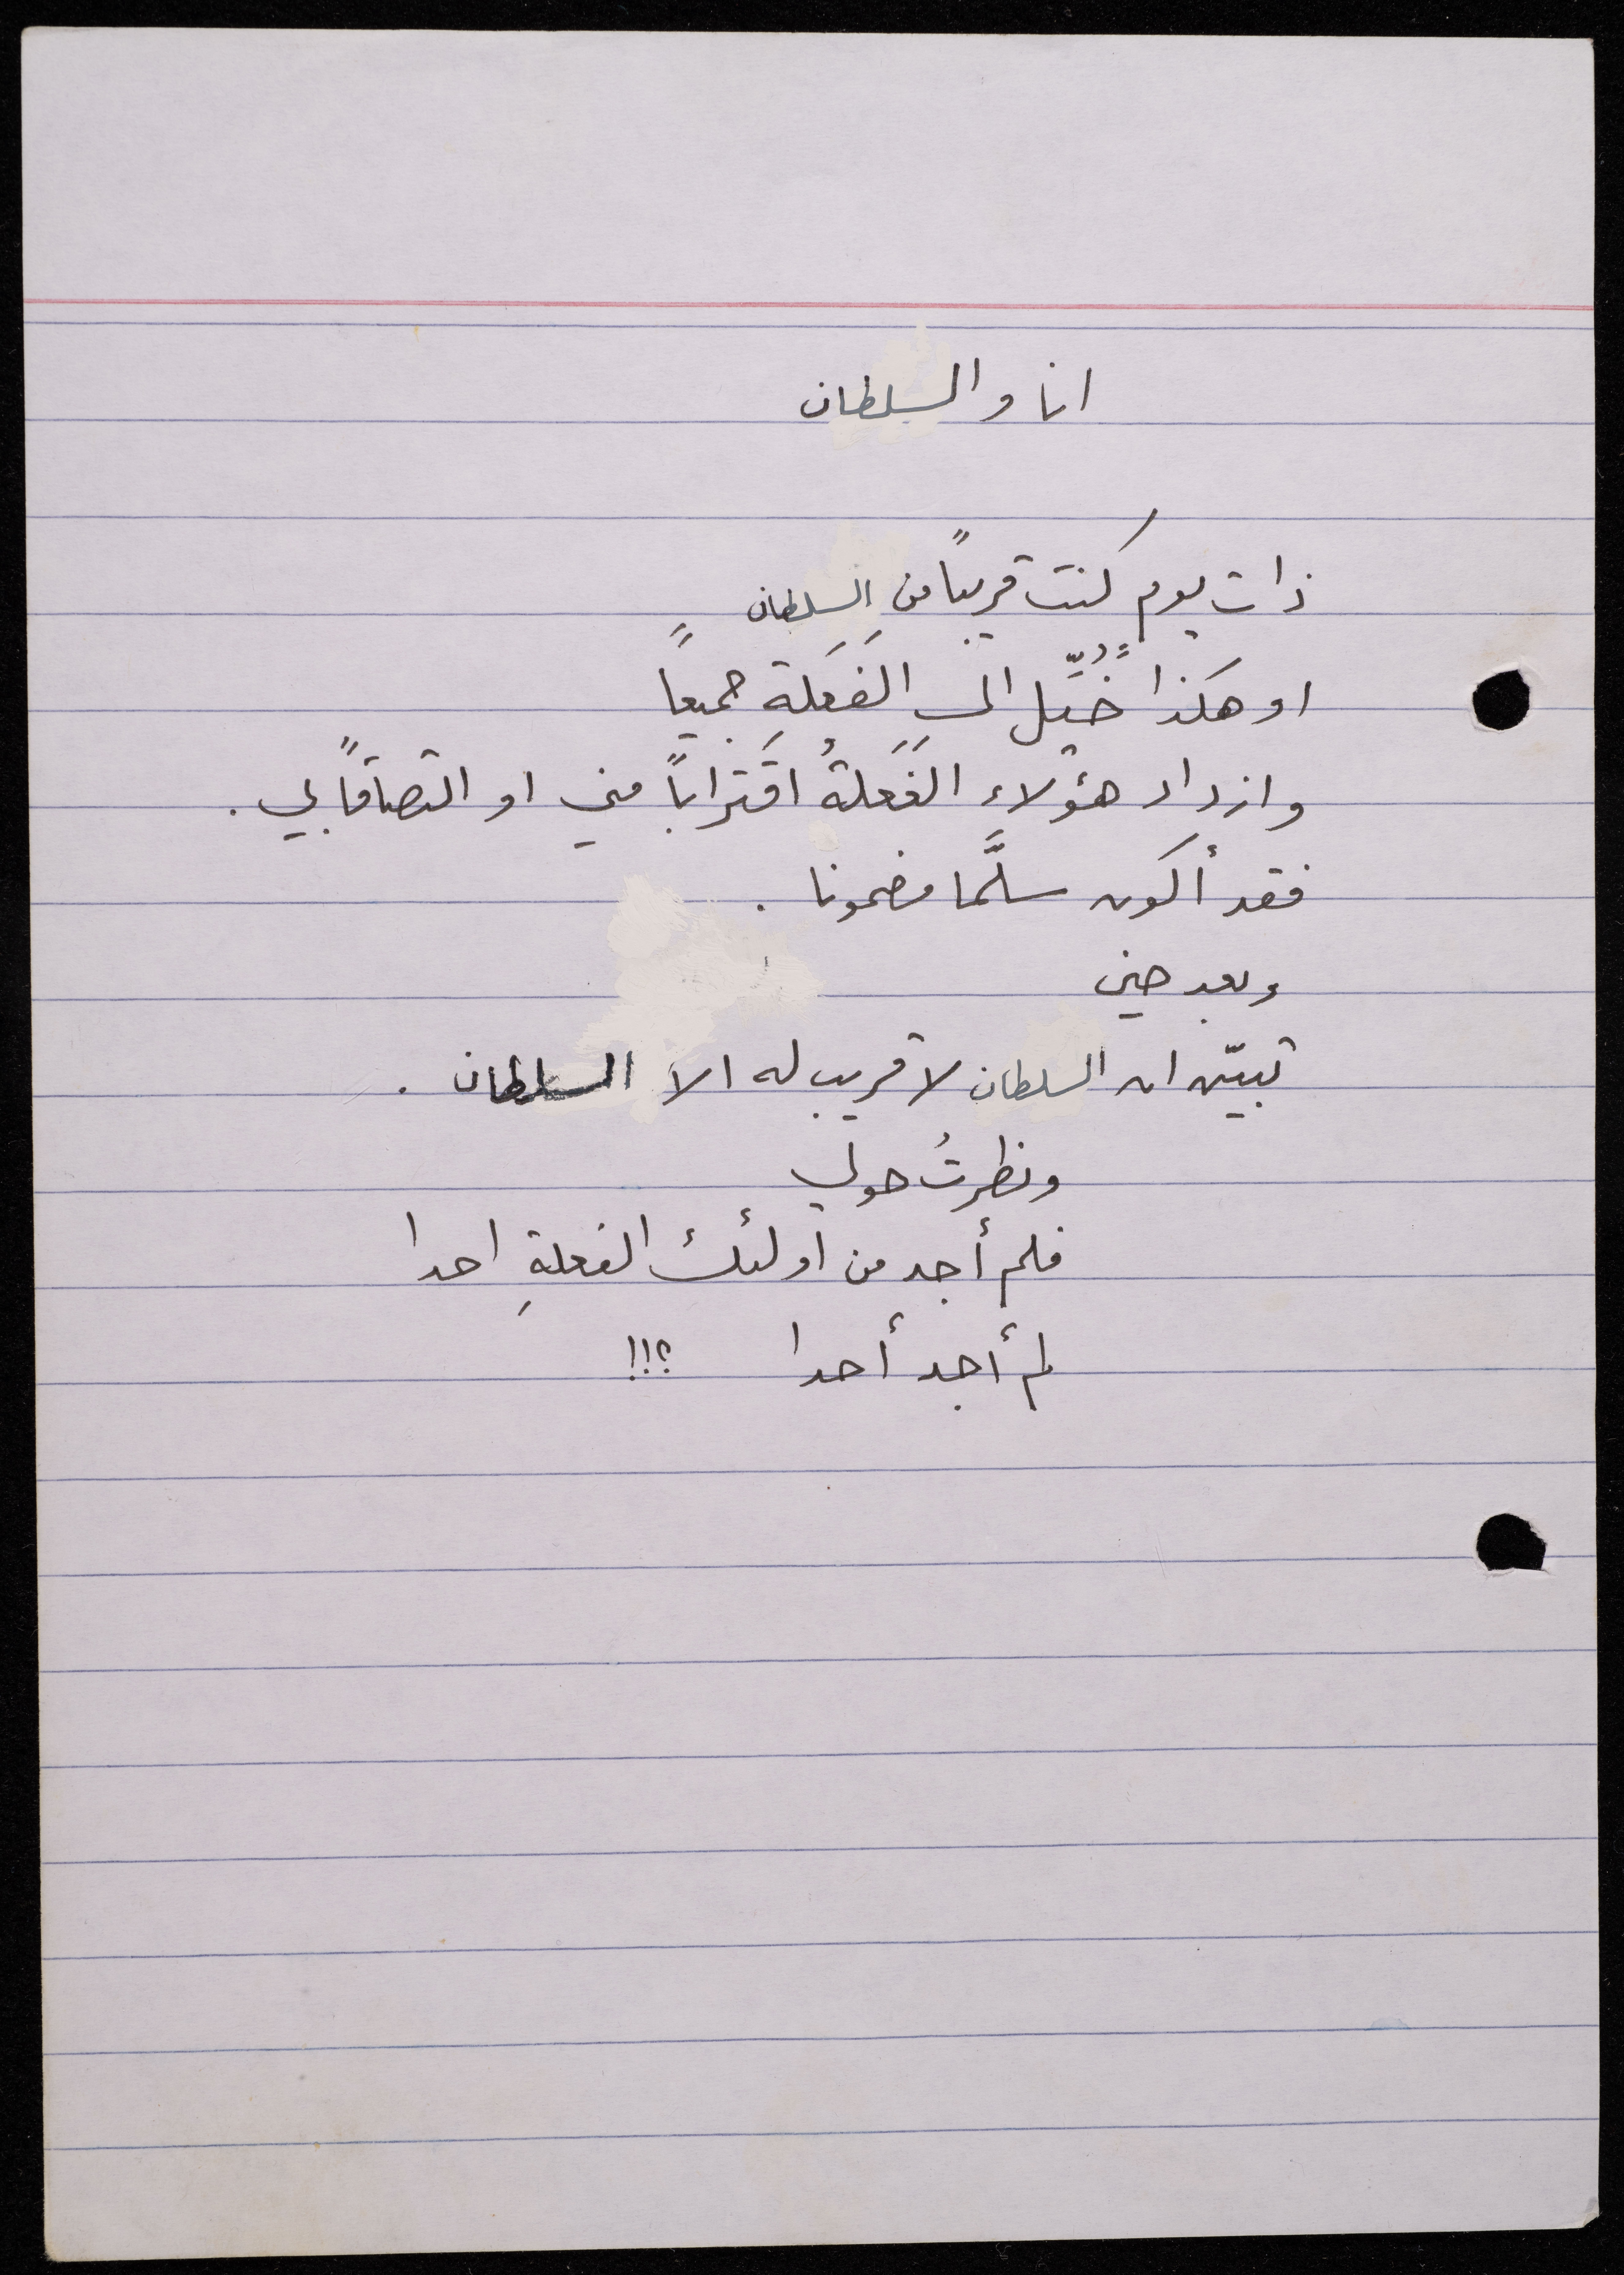 انا والسلطان
ذات يوم كنت قريباً من السلطان
او هكذا خُيِّل الى الفَعَلَةِ جميعاً
وازداد هؤلاء الفَعَلةُ اقتراباً مني او التصاقاً بي .
فقد أكون سلَّما مضمونا .
وبعد حين
تبيّن ان السلطان لا قريب له الا السلطان .
ونظرتُ حولي
فلم أجد من أولئك الفعلةِ احدا
لم أجد أحدا ؟!!